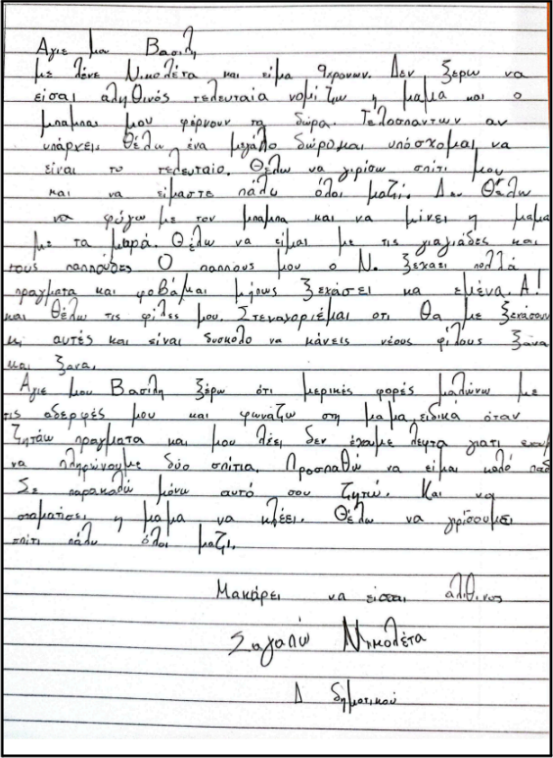 Αγιε μα Βασιλη
με λένε Νικολέτα και είμα 9χρονων. Δεν ξερω να
είσαι αληθινός τελευταία νομίζω η μαμα και ο
μπαμπας μου φέρνουν τα δώρα. Τελοσπαντων αν
υπάρχεις θέλω ένα μεγάλο δώρο και υπόσχομαι να
είναι το τελευταίο. Θέλω να γιρίσω σπίτι μου
και να είμαστε πάλυ όλοι μαζί. Δεν θέλω
να φύγω με τον μπαμπα και να μίνει η μαμα
με τα μωρά. Θέλω να είμαι με τις γιαγιάδες και
τους παππούδες Ο παππους μου ο Ν. ξεχαει πολλά
πραγματα και φοβάμαι μήπως ξεχάσει κα εμένα. Α!
και θέλω τις φίλες μου. Στεναχοριέμαι οτι θα με ξεχάσουν
κι αυτές και είναι δυσκολο να κάνεις νέους φίλους ξάνα
και ξανα.
Αγιε μου Βασιλη ξέρω ότι μερικές φορές μαλώνω με
τις αδερφές μου και φωνάζω στη μαμα ειδικα όταν
ζητάω πραγματα και μου λέει δεν έχουμε λεφτα γιατι
να πληρώνουμε δύο σπίτια. Προσπαθώ να είμαι καλό
Σε παρακαλώ μόνω αυτό σου ζητώ. Και να
σταματίσει η μαμα να κλέει. Θέλω να γιρίσουμε
σπίτι πάλυ όλοι μαζι.
Μακάρει να είσαι άλιθινος
Σαγαπώ Νικολέτα
Δ δημοτικού